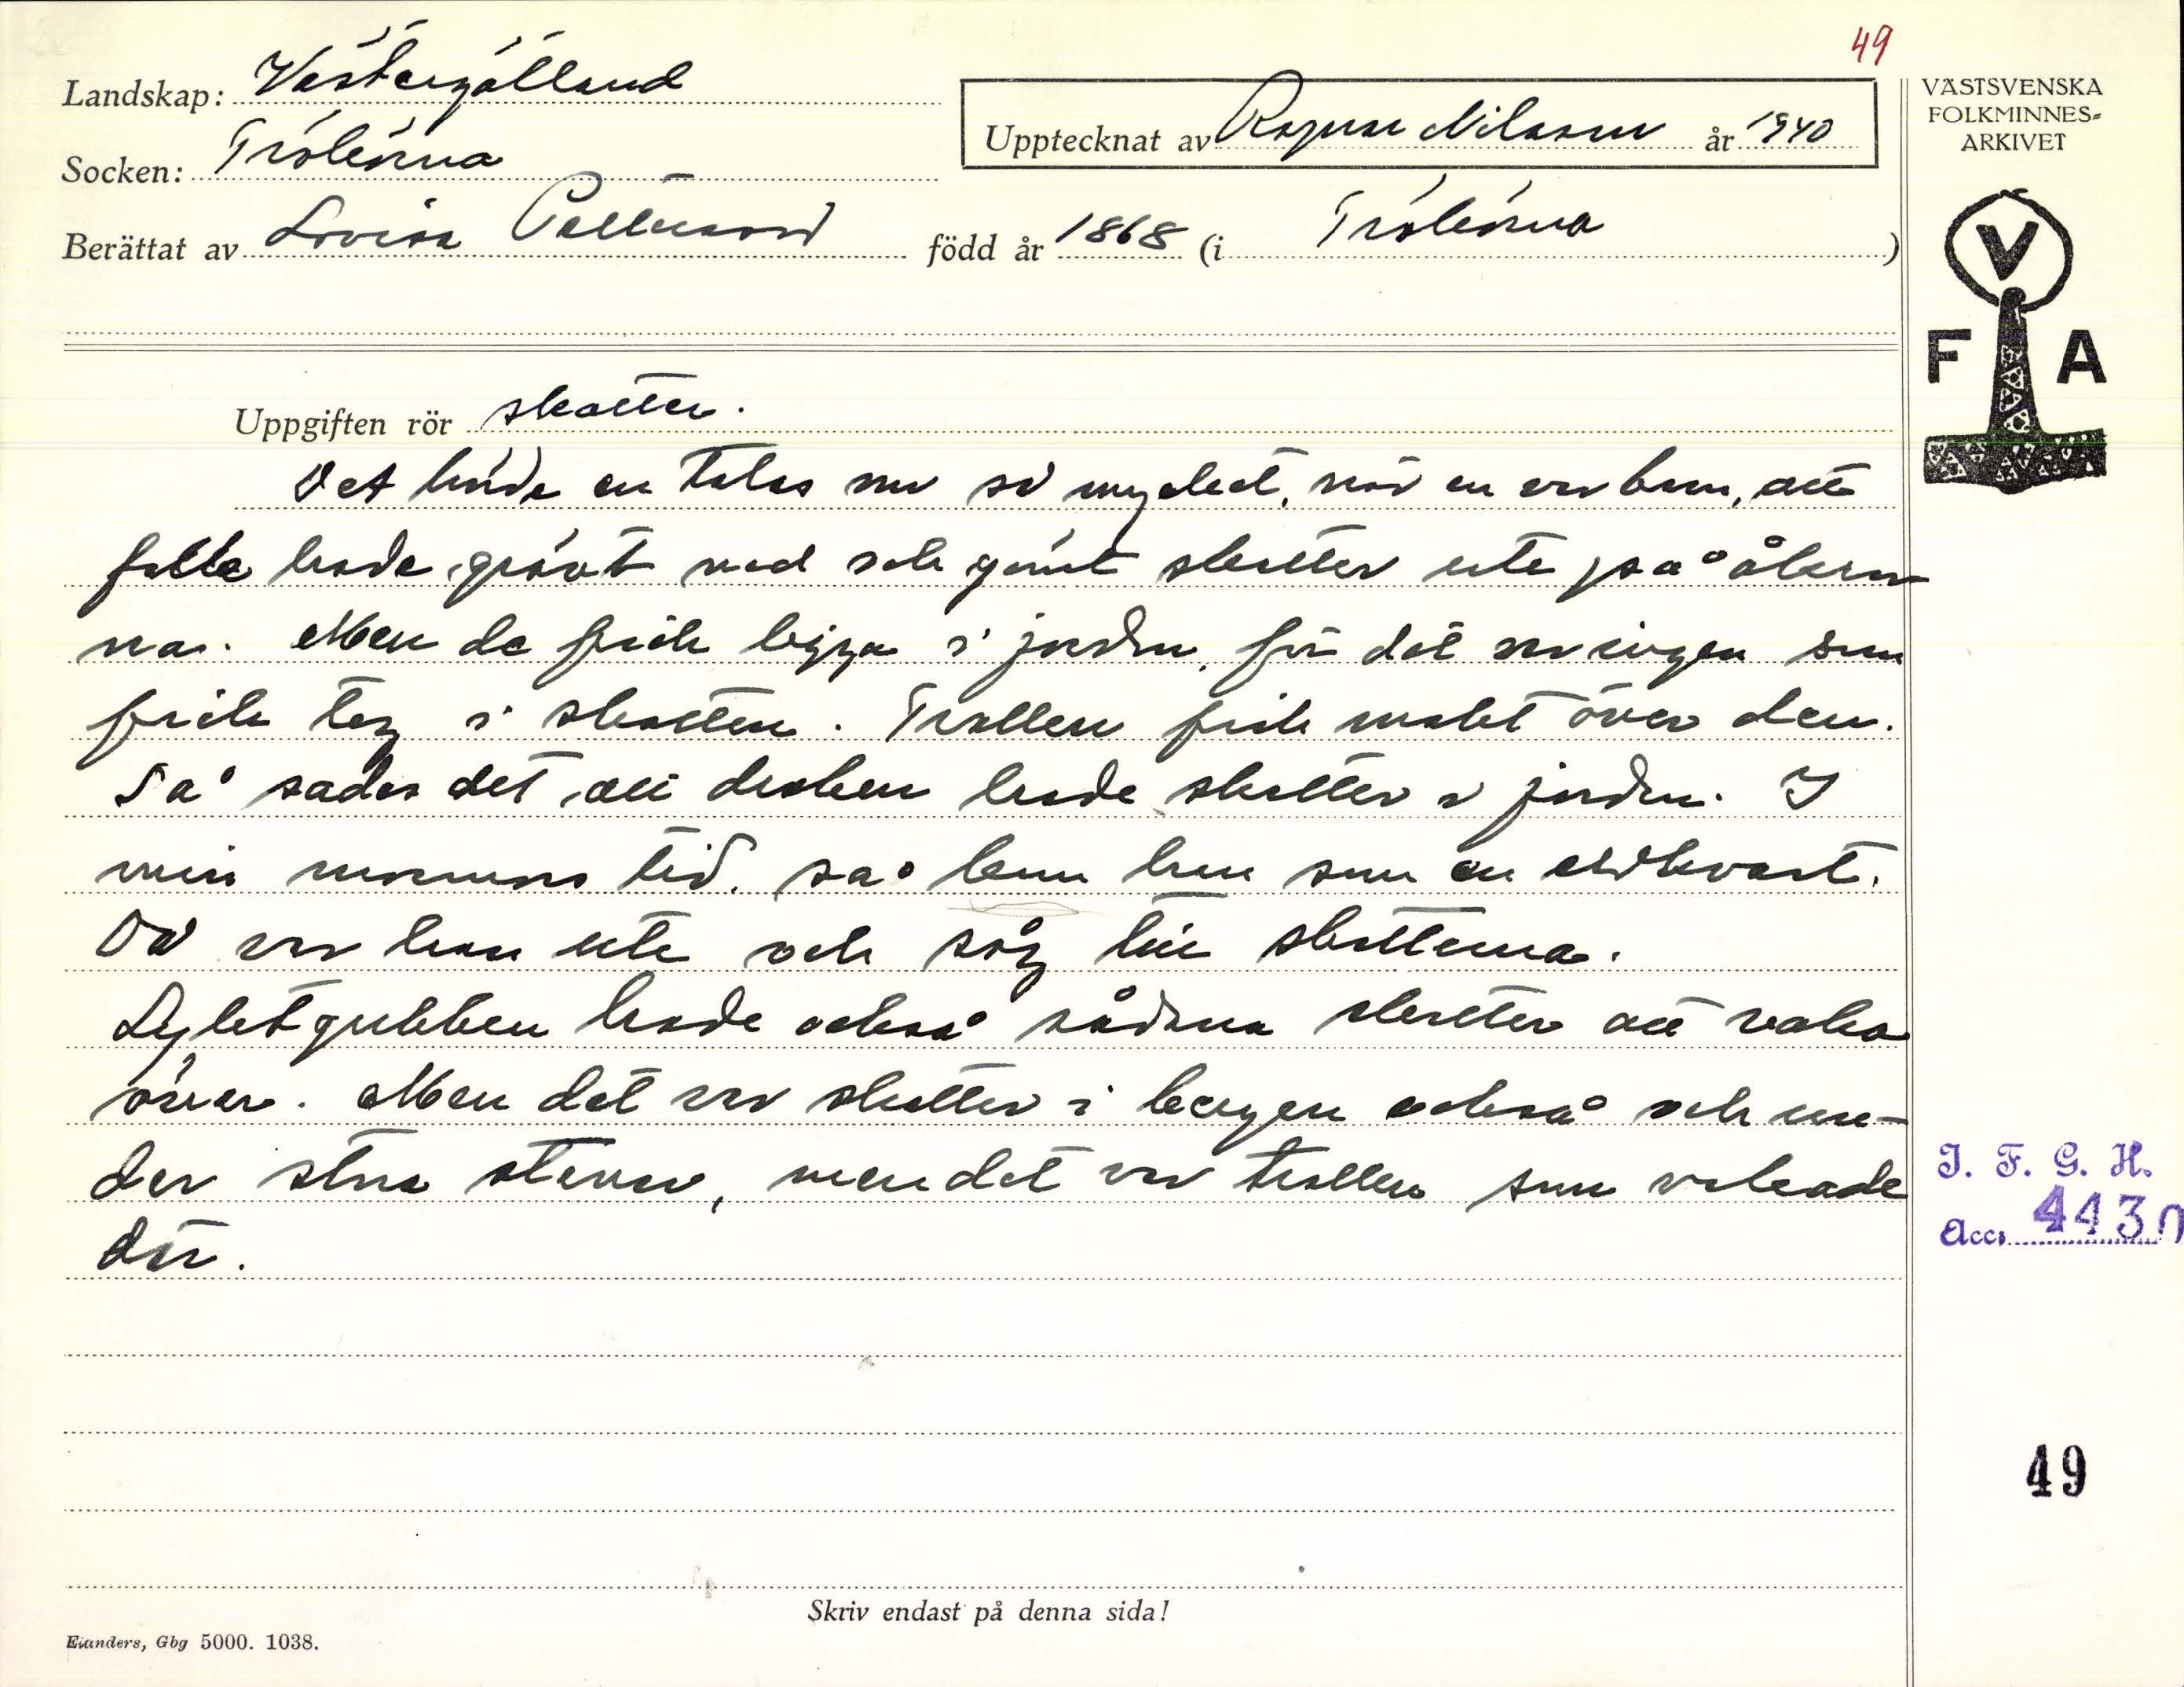 49
Landskap: Västergötland
Upptecknat av Ragnar Nilsson år 1940
VÄSTSVENSKA
FOLKMINNES=
ARKIVET
Socken: Trökörna
Berättat av Lovisa Pettersson född år 1868 (i Trökörna)
V
F A
Uppgiften rör skatter.
Det hörde en talas om så mycket, när en var barn, att
folk hade grävt ned och gömt skatter ute på åkern
na. Men de fick ligga i jorden, för det var ingen som
fick tag i skatten. Trollen fick makt över den.
Så sades det, att draken hade skatter i jorden. I
min mormors tid, så kom han som en eldkvast.
Då var han ute och såg till skatterna.
Lyktgubben hade också sådana skatter att vaka
över. Men det var skatter i bergen också och un-
der stora stenar, men det var trollen som vakade
där.
I. F. G. H.
Acc. 4430
49
Skriv endast på denna sida!
Elanders, Gbg 5000. 1038.